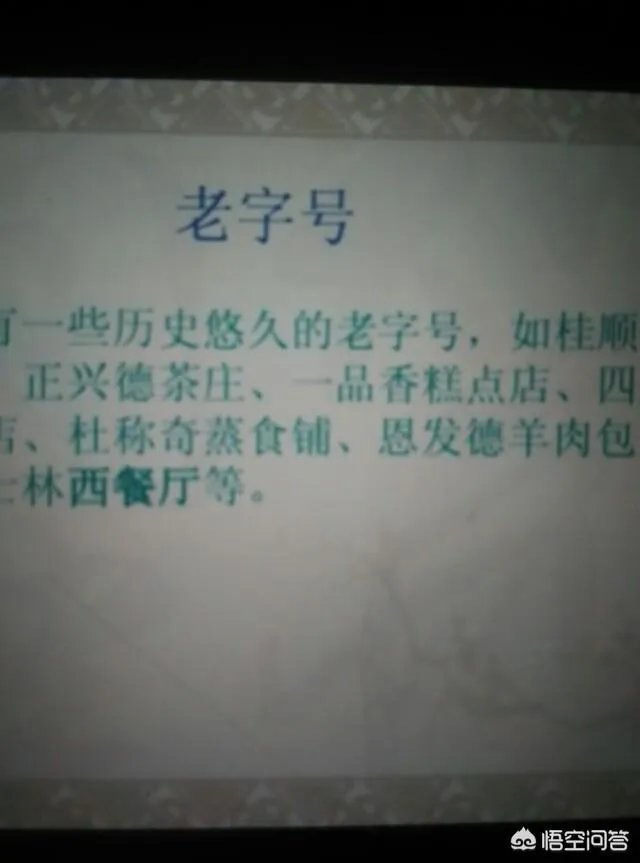 老字号
有一些历史悠久的老字号，如桂顺
正兴德茶庄、一品香糕点店、四
店、杜称奇蒸食铺、恩发德羊肉包
士林西餐厅等。
悟空问答